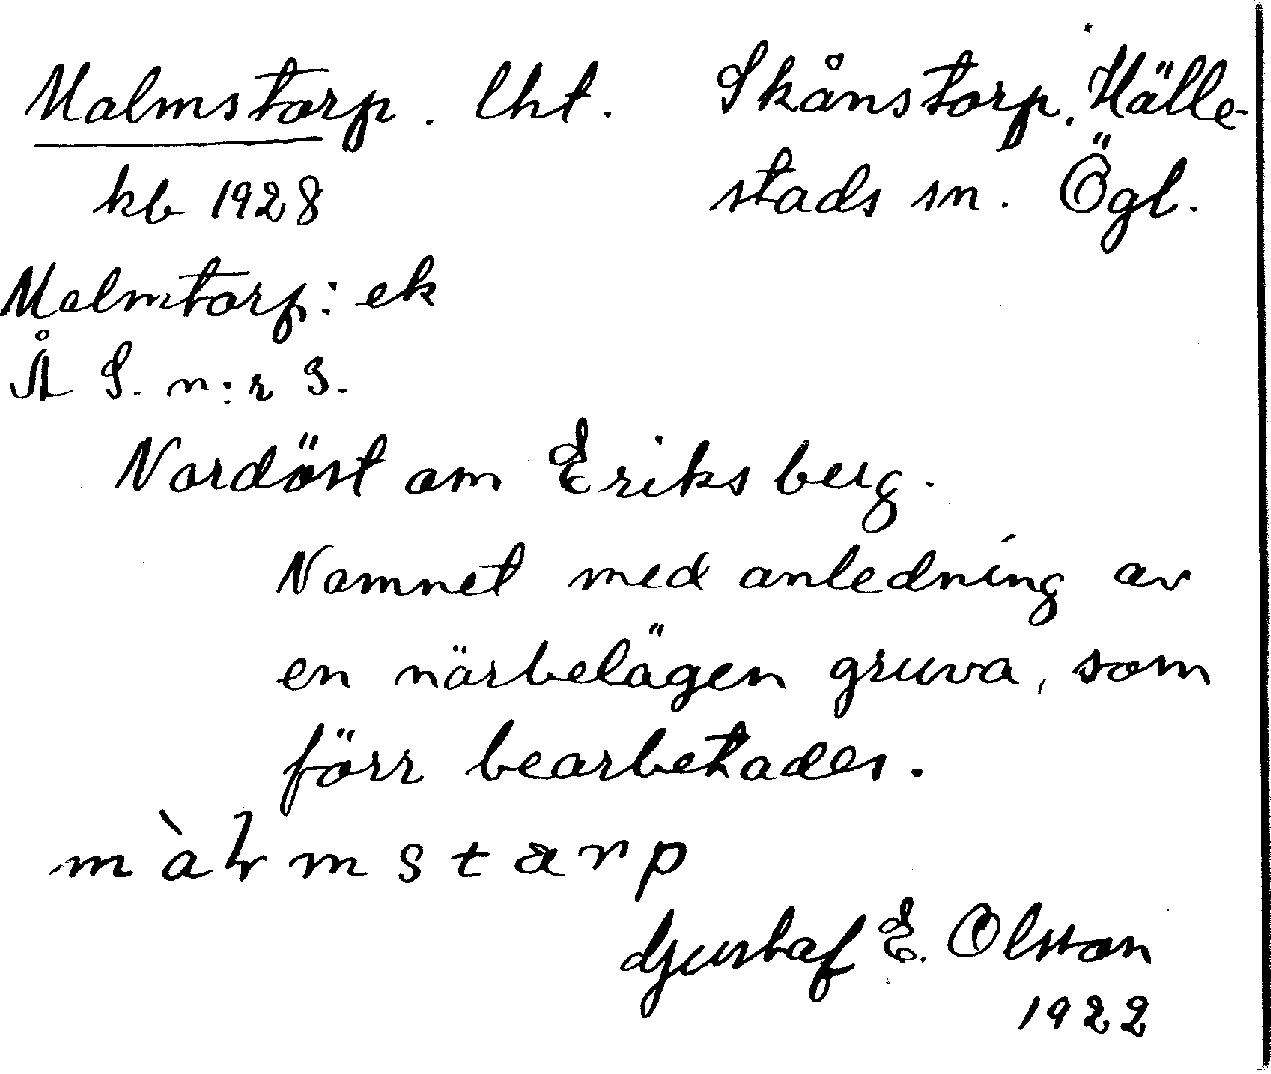 Malmstorp. lht. Skånstorp, Hälle-
kb 1928 stads sn. Ögl.
Malmtorp: ek
ÅS. n:r 3.
Nordöst om Eriksberg.
Namnet med anledning av
en närbelägen gruva, som
förr bearbetades.
màɫmstarp
Gustaf E. Olsson
1922